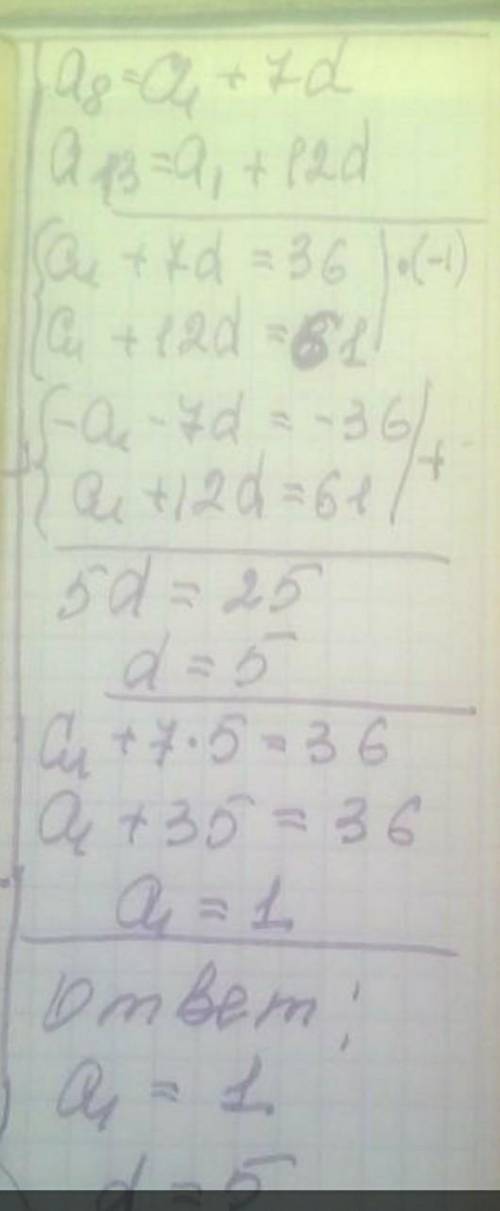 a₈ = a₁ + 7d
a₁₃ = a₁ + 12d
a₁ + 7d = 36 | · (-1)
a₁ + 12d = 61
-a₁ - 7d = -36 | +
a₁ + 12d = 61
5d = 25
d = 5
a₁ + 7 · 5 = 36
a₁ + 35 = 36
a₁ = 1
Ответ:
a₁ = 1
d = 5